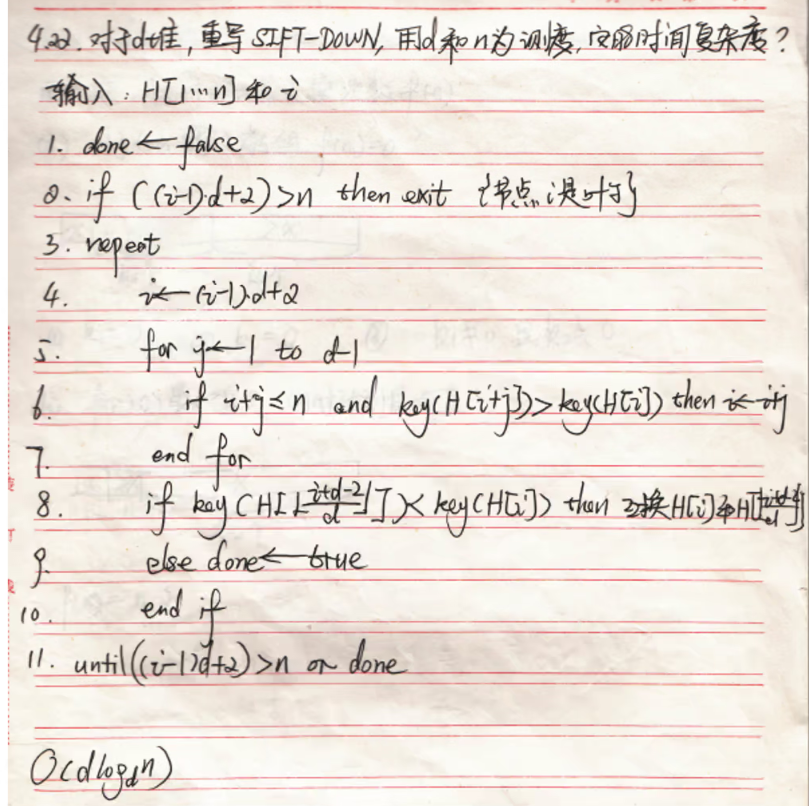 4.22. 对于d堆, 重写 SIFT-DOWN, 用d和n为测度, 它的时间复杂度?
输入: H[1…n] 和 i
1. done ← false
2. if ((i-1)·d+2)>n then exit {节点i是叶子}
3. repeat
4. i← (i-1)·d+2
5. for j←1 to d-1
6. if i+j≤n and key(H[i+j])>key(H[i]) then i←i+j
7. end for
8. if key(H[⌊(i+d-2)/d⌋])<key(H[i]) then 互换H[i]和H[⌊(i+d-2)/d⌋]
9. else done←true
10. end if
11. until((i-1)d+2)>n or done
O(dlog_d n)